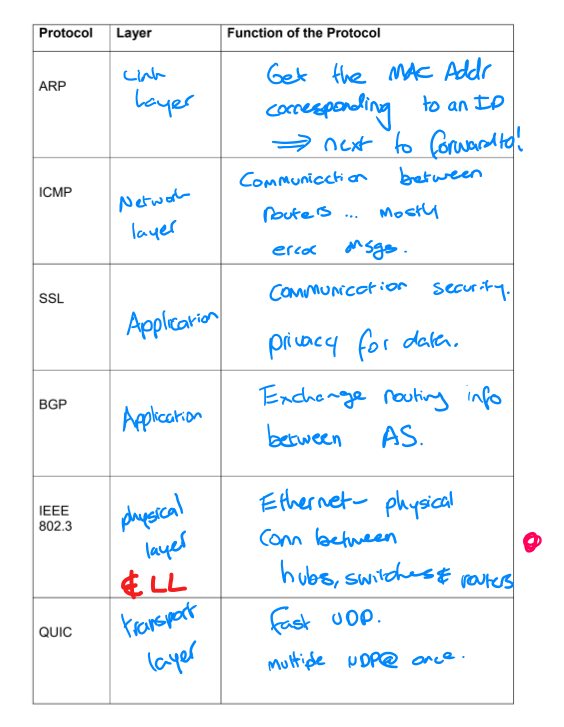 Protocol Layer Function of the Protocol
ARP
Link
Layer
Get the MAC Addr
corresponding to an IP
⇒ next to forward to!
ICMP
Network
layer
Communication between
routers ... mostly
error msgs.
SSL
Application
Communication security.
privacy for data.
BGP
Application
Exchange routing info
between AS.
IEEE
802.3
physical
layer
& LL
Ethernet - physical
Conn between
hubs, switches & routers
QUIC
transport
layer
fast UDP.
multiple UDP@ once.